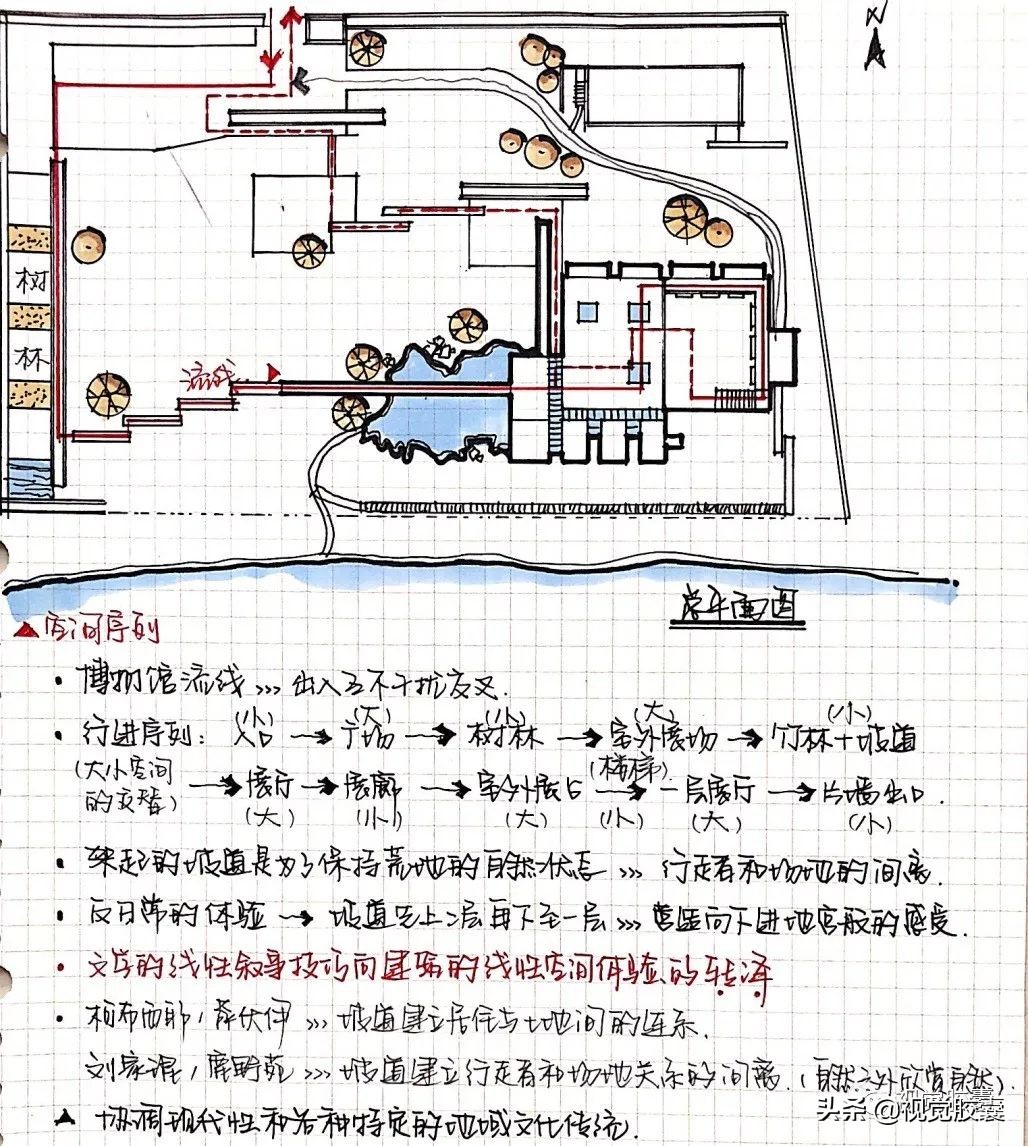 N
树
林
流线
总平面图
▲空间序列
• 博物馆流线 ››› 出入互不干扰交叉.
(小) (大) (小) (大) (小)
• 行进序列: 入口 → 广场 → 树林 → 室外展场 → 竹林+坡道
(大小空间的交替) → 展厅 → 展廊 → 室外展台 (楼梯) → 一层展厅 → 片墙出口.
(大) (小) (大) (小) (大) (小)
• 架起的坡道是为了保持荒地的自然状态 ››› 行走者和场地的间离.
• 反日常的体验 → 坡道先上二层再下至一层 ››› 营造向下进地宫般的感受.
• 文学的线性叙事技巧向建筑的线性空间体验的转译
• 柯布西耶, 萨伏伊 ››› 坡道建立居住与土地间的连系.
刘家琨, 鹿野苑 ››› 坡道建立行走者和场地关系的间离. (自然之外欣赏自然).
▲ 协调现代性和各种特定的地域文化传统.
头条@视觉胶囊